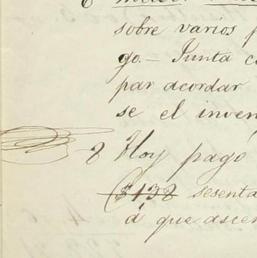 sobre varios p
go.— Junta c
par acordar
se el inven
8 Hoy pagó
$132 sesenta
á que ascen